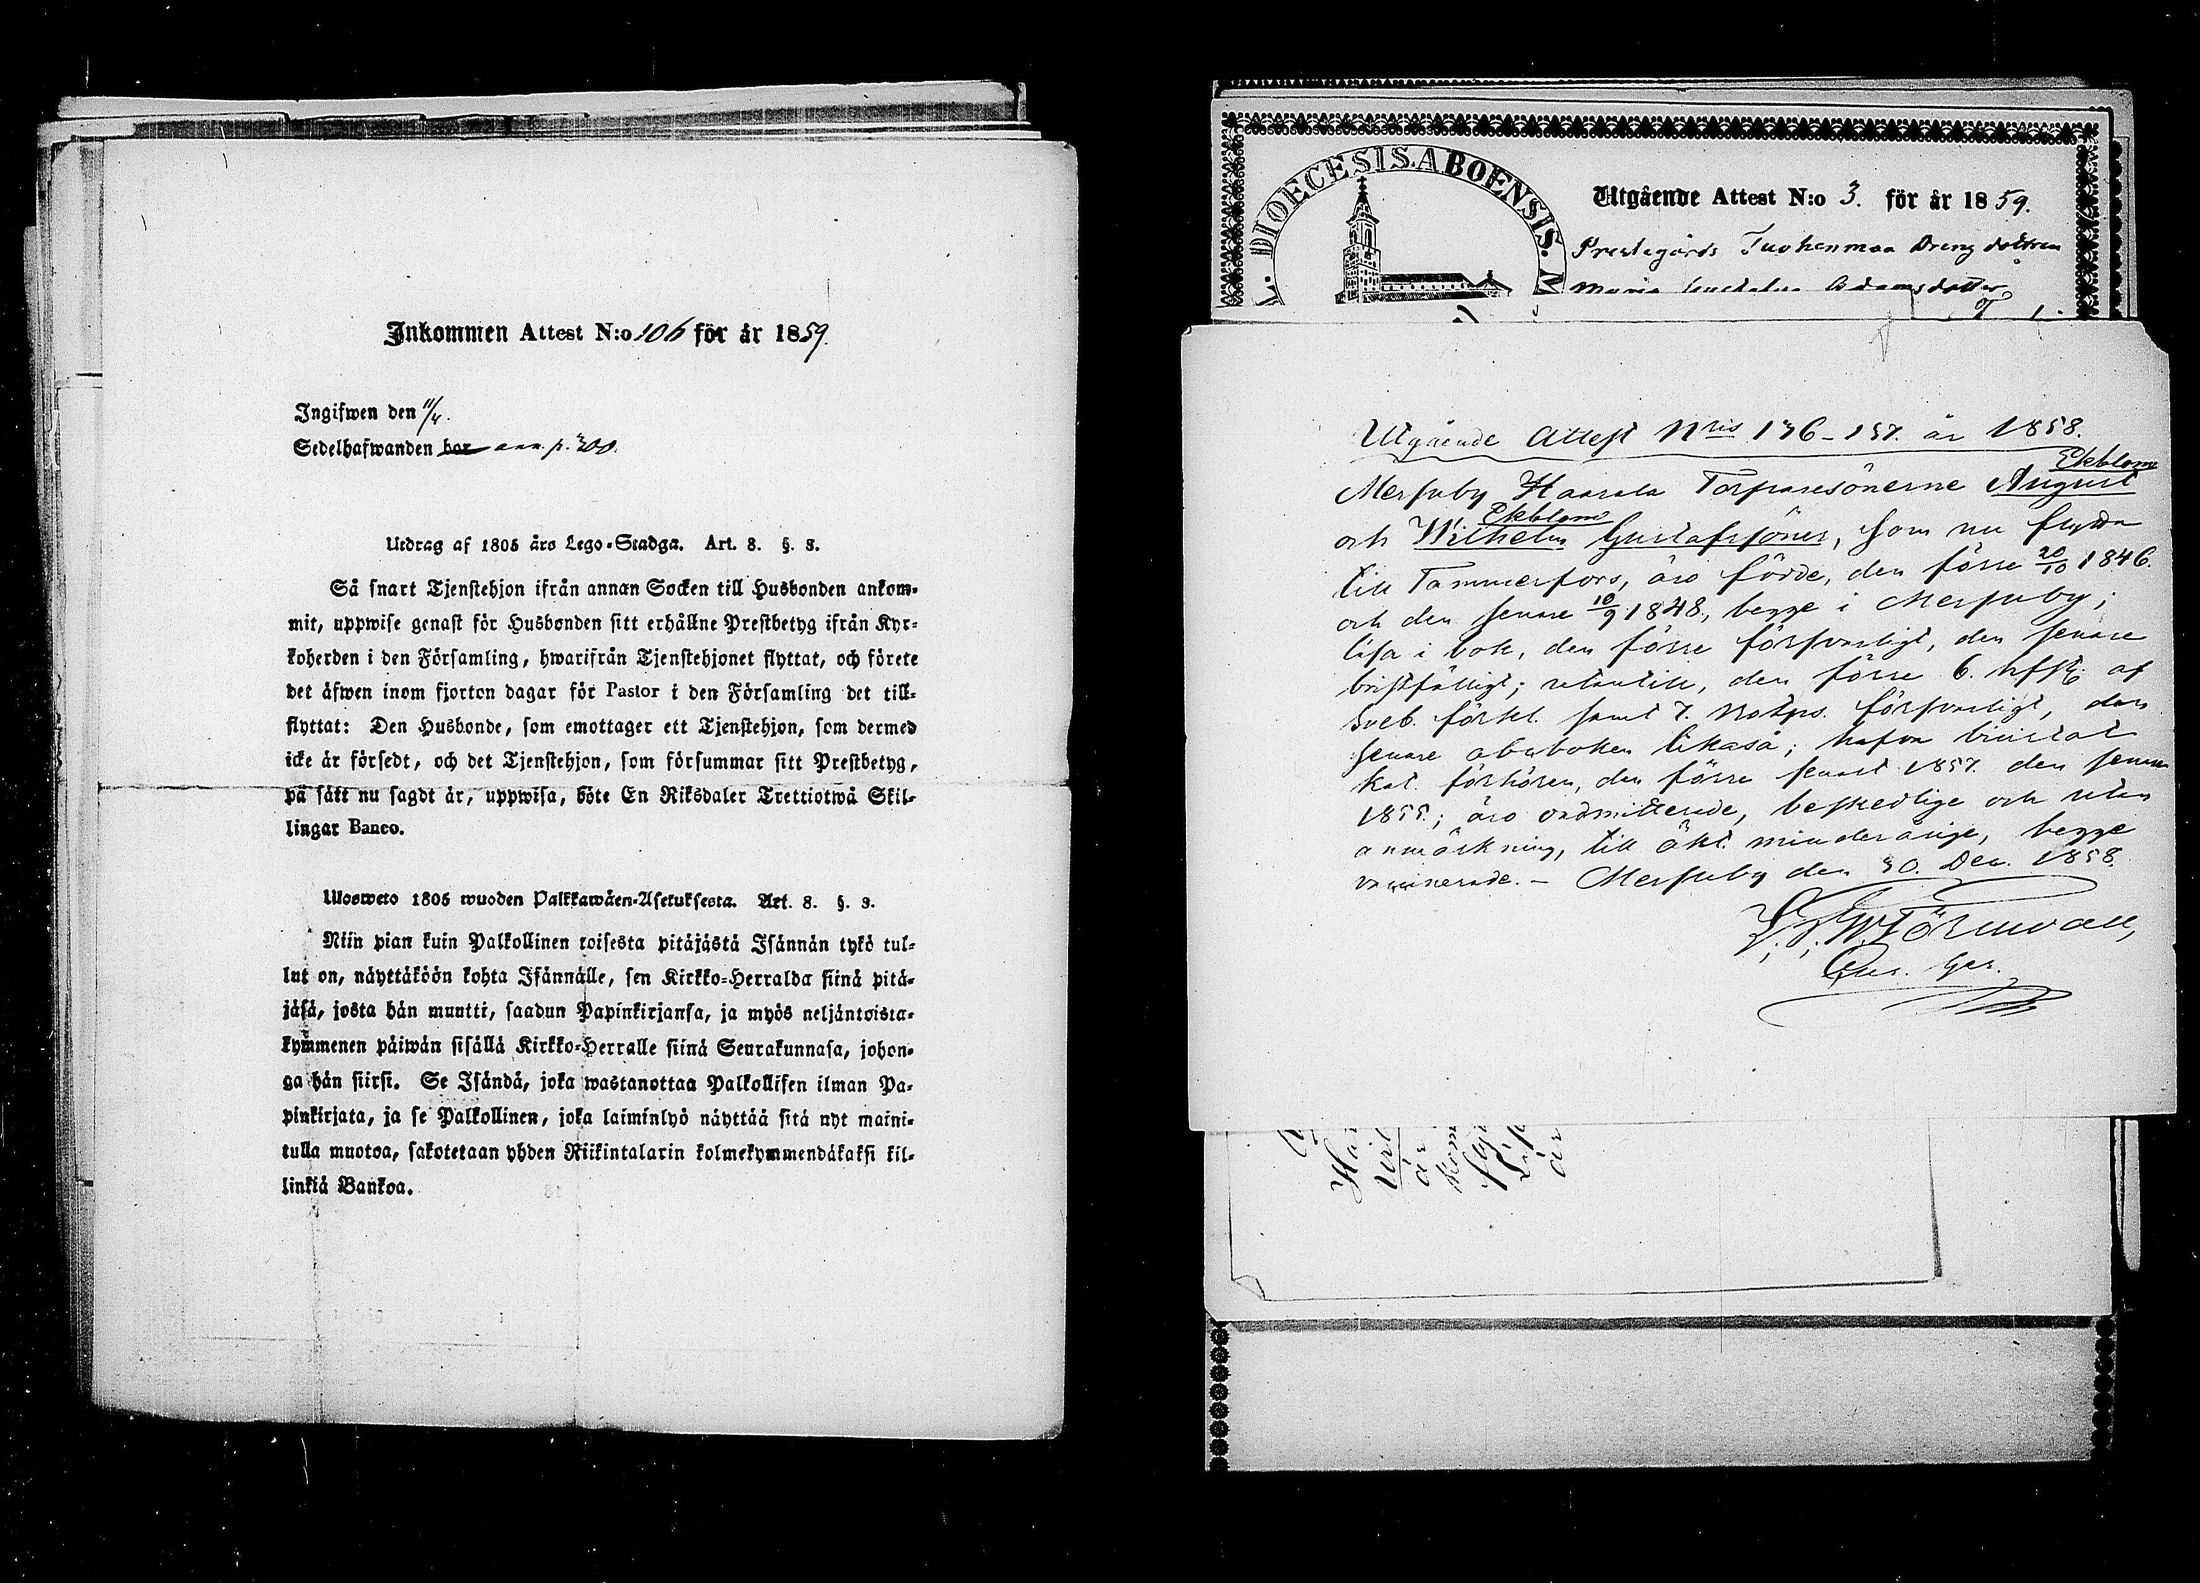 Inkommen Attest N:o 106 för år 1859.
Ingifwen den 11/4.
Sedelhafwanden bor ann. p. 300.
Utdrag af 1805 års Lego-Stadga. Art. 8. §. 3.
Så snart Tjenstehjon ifrån annan Socken till Husbonden ankom-
mit, uppwise genast för Husbonden sitt erhållne Prestbetyg ifrån Kyr-
koherden i den Församling, hwarifrån Tjenstehjonet flyttat, och förete
det äfwen inom fjorton dagar för Pastor i den Församling det till-
flyttat: Den Husbonde, som emottager ett Tjenstehjon, som dermed
icke är försedt, och det Tjenstehjon, som försummar sitt Prestbetyg,
på sått nu sagdt är, uppwisa, böte En Riksdaler Trettiotwå Skil-
lingar Banco.
Ulosweto 1805 wuoden Palkkawäen-Asetuksesta. Art. 8. §. 3.
Niin pian kuin Palkollinen toisesta pitäjästä Isännän tykö tul-
lut on, näyttäköön kohta Isännälle, sen Kirkko-Herralda siinä pitä-
jäsä, josta hän muutti, saadun Papinkirjansa, ja myös neljäntoista-
kymmenen päiwän sisällä Kirkko-Herralle siinä Seurakunnasa, johon-
ga hän siirsi. Se Isändä, joka wastanottaa Palkollisen ilman Pa-
pinkirjata, ja se Palkollinen, joka laiminlyö näyttää sitä nyt maini-
tulla muotoa, sakotetaan yhden Riikintalarin kolmekymmendäkaksi kil-
linkiä Bankoa.
DIOECESIS. ABOENSIS.
Utgående Attest N:o 3. för år 1859.
Prestegårds Tuohenmaa Dreng dottren
Maria Adamsdotter
Utgående Attest Nris 136-137. år 1858.
Ekblom
Mersuby Haarala Torparesönerne August
Ekblom
och Wilhelm Gustafssöner, som nu flytta
till Tammerfors, äro födde, den förre 20/10 1846.
och den senare 10/9 1848, begge i Mersuby;
läsa i bok, den förre försvarligt, den senare
bristfälligt; utantill, den förre 6. hfst. af
Sveb. förkl. samt 7. Botps. försvarligt, den
senare abcboken likaså; hafva bivistat
kat. förhören, den förre senast 1857. den senare
1855.; äro oadmitterade, beskedlige och utan
anmärkning, till äkt. minderårige, begge
vaccinerade. – Mersuby den 30. Dec. 1858.